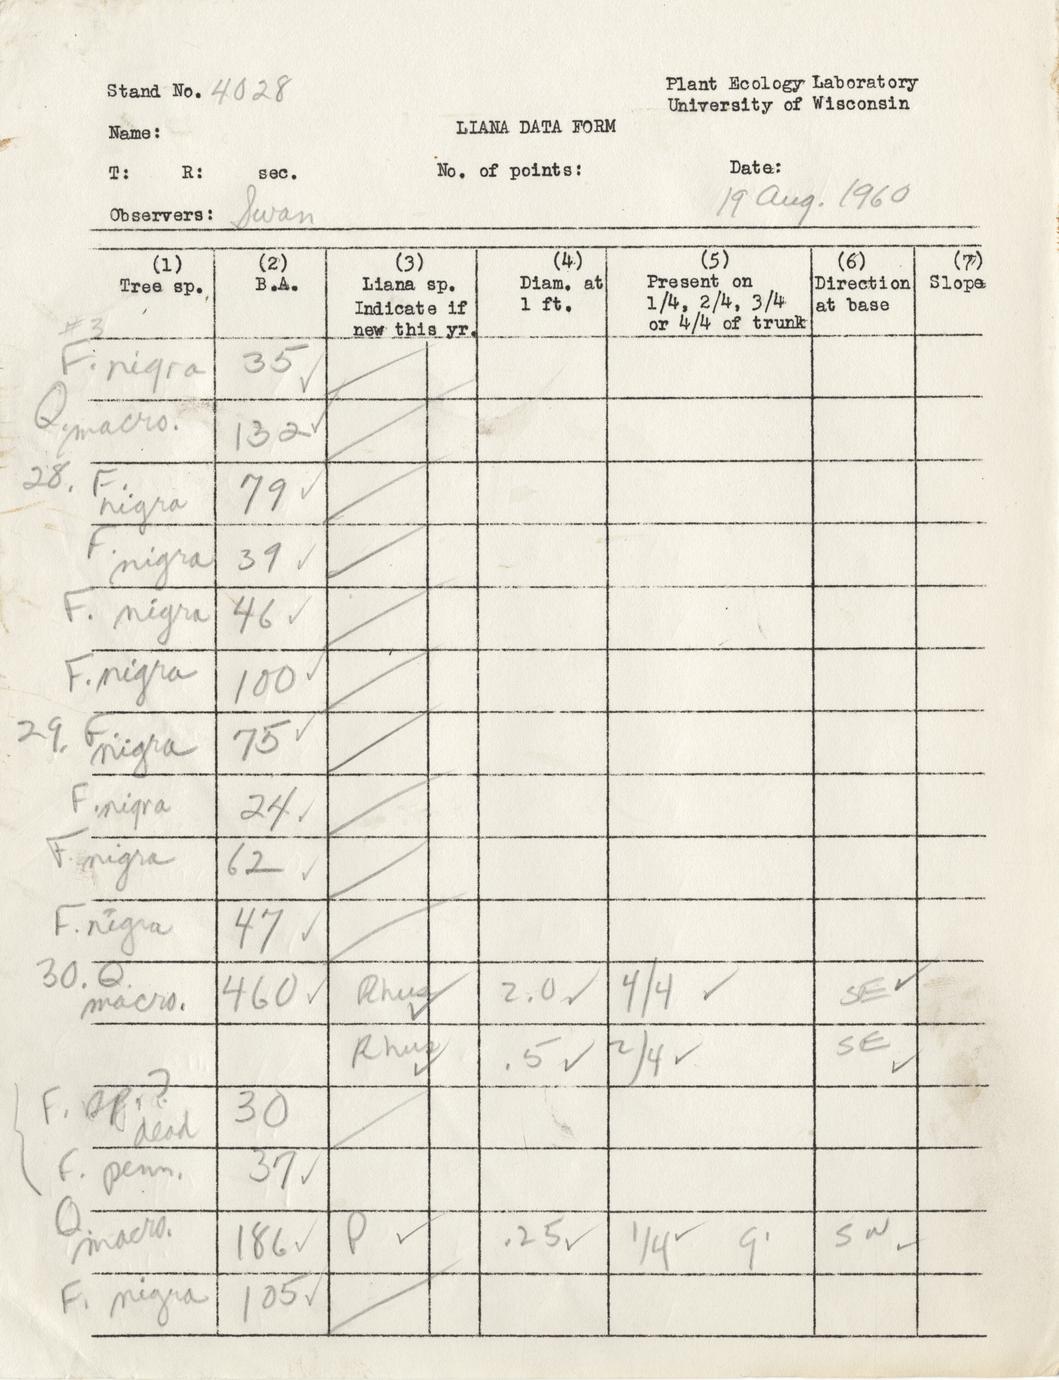 Stand No. 4028
Plant Ecology Laboratory
University of Wisconsin
Name:
LIANA DATA FORM
T: R: sec. No. of points: Date:
19 Aug. 1960
Observers: Swan
(1) (2) (3) (4) (5) (6) (7)
Tree sp. B.A. Liana sp. Diam. at Present on Direction Slope
Indicate if 1 ft. 1/4, 2/4, 3/4 at base
new this yr. or 4/4 of trunk
#3
F. nigra 35 ✓
Q. macro. 132 ✓
28. F. nigra 79 ✓
F. nigra 39 ✓
F. nigra 46 ✓
F. nigra 100 ✓
29. F. nigra 75 ✓
F. nigra 24 ✓
F. nigra 62 ✓
F. nigra 47 ✓
30. Q. macro. 460 ✓ Rhus ✓ 2.0 ✓ 4/4 ✓ SE ✓
Rhus ✓ .5 ✓ 2/4 ✓ SE ✓
F. sp.? dead 30
F. penn. 37 ✓
Q. macro. 186 ✓ P ✓ .25 ✓ 1/4 ✓ 9' SW ✓
F. nigra 105 ✓